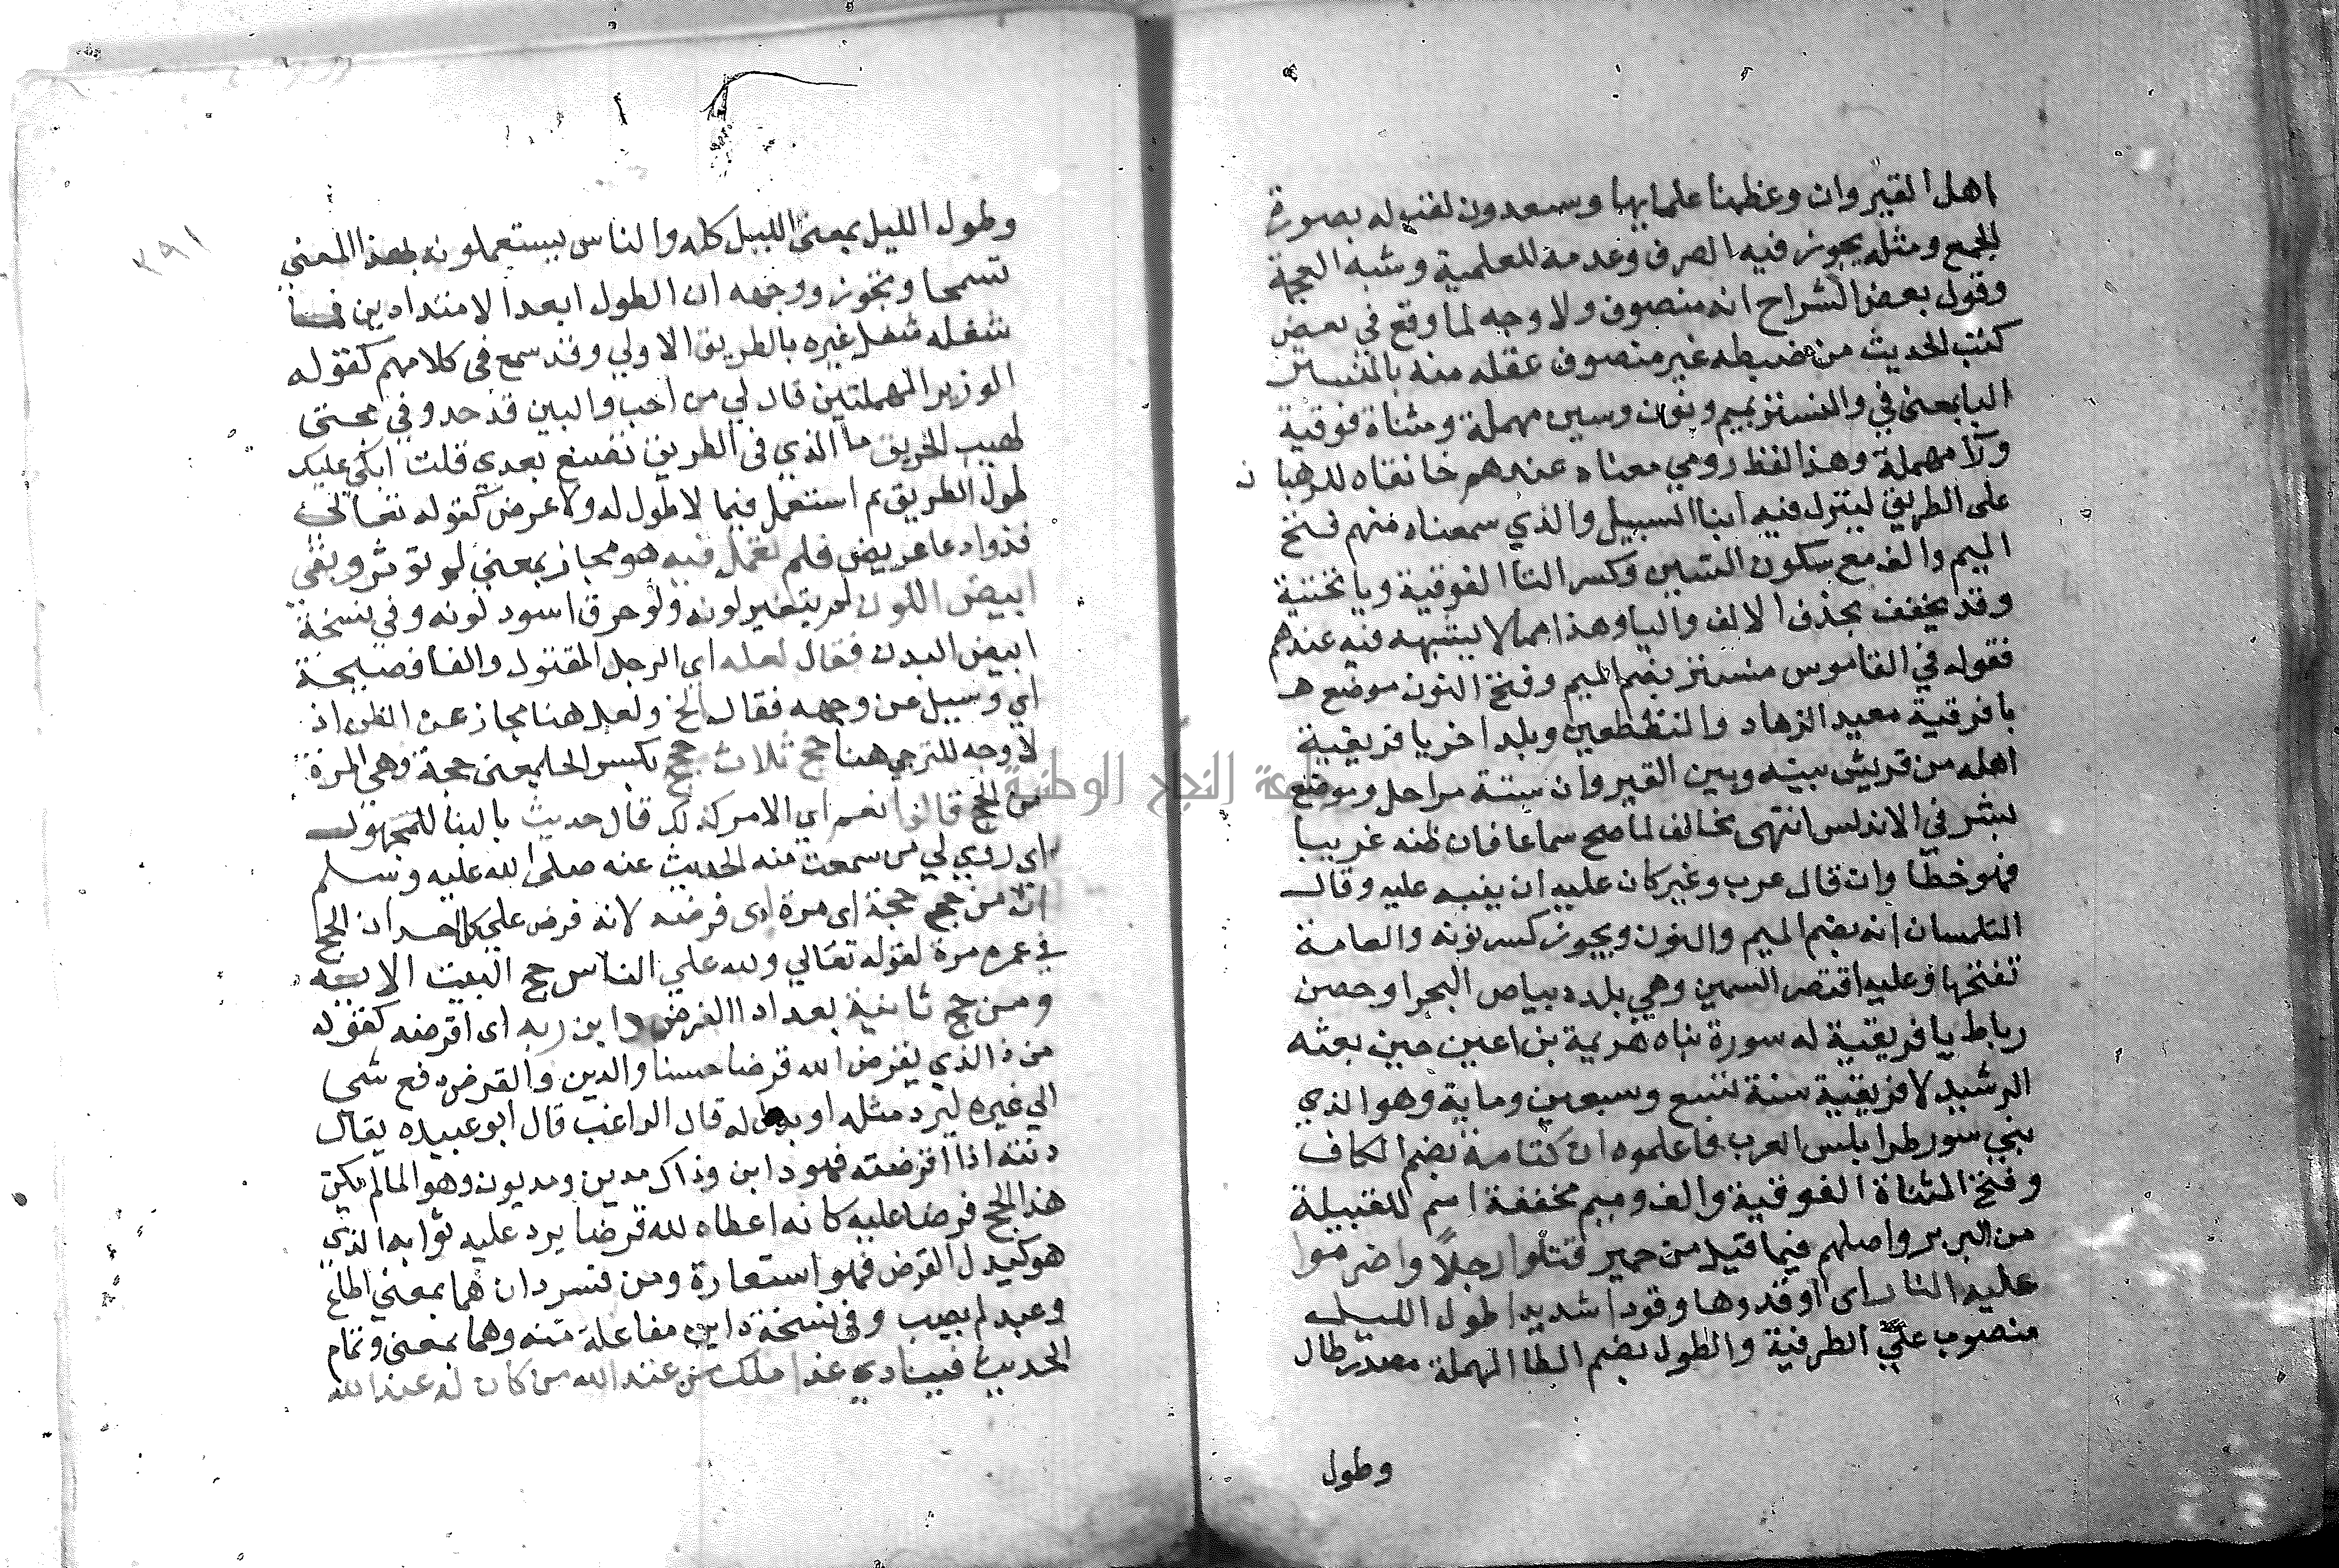 اهل القيروان وعظمنا علمايها وسعدون لقب له بصورة
الجمع ومثله يجوز فيه الصرف وعدمه للعلمية وشبه العجمة
وقول بعض الشراح انه منصوف ولا وجه لما وقع في بعض
كتب الحديث من ضبطه غير منصوف عقله منه بالمنستير
البا بمعنى في والمنستر بميم ونون وسين مهملة ومثناة فوقية
ورا مهملة وهذا لفظ رومي معناه عندهم خانقاه للرهبان
على الطريق لينزل فيه ابنا السبيل والذي سمعناه منهم فتح
الميم والف مع سكون السين وكسر التا الفوقية ويا تحتية
وقد يخفف بحذف الالف واليا وهذا مما لا يشتبه فيه عندهم
فقوله في القاموس منستر بضم الميم وفتح النون موضع هـ
بافرقية معبد الزهاد والمنقطعين وبلد اخر يا فريقية
اهله من قريش بينه وبين القيروان ستة مراحل وموضع
بشر في الاندلس انتهى مخالف لما صح سماعا فان ظنه غريبا
فهو خطا وان قال عرب وغير كان عليه ان ينبه عليه وقال
التلمسان انه بضم الميم والنون ويجوز كسر نونه والعامة
تفتحها وعليه اقتصر السمين وهي بلده بياض البحر او حصن
رباط يا فريقية له سورة بناه هرثمة بن اعين حين بعثه
الرشيد لافريقية سنة تسع وسبعين وماية وهو الذي
بني سور طرابلس العرب فاعلموه ان كتامة بضم الكاف
وفتح المثناة الفوقية والف وميم مخففة اسم للقبيلة
من البربر واصلهم فيما قيل من حمير قتلوا رجلا واضرموا
عليه النار اى اوقدوها وقودا شديدا طول الليل
منصوب على الظرفية والطول بضم الطا المهملة مصدر طال
وطول
٣٩١
وطول الليل بمعنى الليل كله والناس يستعملونه لهذا المعنى
تسمحا وتجوز ووجهه ان الطول ابعد الامتدادين فما
شغله شغل غيره بالطريق الاولي وقد سمع في كلامهم كقوله
الوزير المهملتين قال لي من احب والبين قد حد وفي مهجتى
لهيب الحريق ما الذي في الطريق تصنع بعدي قلت ابكي عليك
طول الطريق ثم استعمل فيما لا طول له ولا عرض كقوله تعالى
فذوا دعا عريض فلم تعمل فيه هو مجاز بمعنى لم تؤثر وبقي
ابيض اللون لم يتغير لونه ولو حرق اسود لونه وفي نسخة
ابيض البدن فقال لعله اي الرجل المقتول والفا فصيحة
اي وسيل عن وجهه فقال الخ ولعل هنا مجاز عن الظن اذ
لا وجه للترجي هنا حج ثلاث حجج بكسر الحا بمعنى حجة وهي المرة
من الحج قالوا نعم اي الامر كذلك قال حديث بالبنا للمجهول
اى روي لي من سمعت منه الحديث عنه صلى الله عليه وسلم
انه من حج حجة اى مرة ادى فرضه لانه فرض على كل احد ان الحج
في عمره مرة لقوله تعالي ولله علي الناس حج البيت الاية
ومن حج ثانية بعد اداا الفرض داين ربه اى اقرضه كقوله
من ذا الذي يقرض الله قرضا حسنا والدين والقرض دفع شى
الي غيره ليرد مثله او بدله قال الراغب قال ابو عبيده يقال
دنته اذا اقرضته فهو داين وذاك مدين ومديون وهو المالم يكن
هذا الحج فرضا عليه كانه اعطاه لله قرضا يرد عليه ثوابه الذي
هو كبدل القرض فهو استعارة ومن فسر دان هما بمعني اطاع
وعبد لم يصب وفي نسخة داين مفاعلة منه وهما بمعنى وتمام
الحديث فينادي غدا ملك من عند الله من كان له عند الله